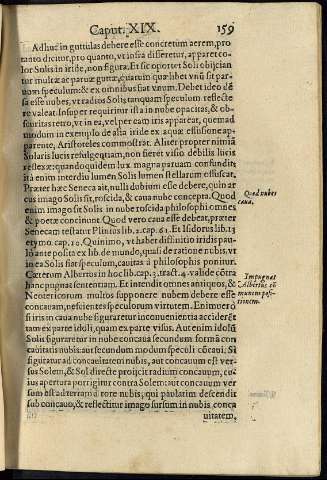 Caput. XIX. 159
Adhuc in guttulas debere esse concretum aerem, pro
tanto dicitur, pro quanto, vt infra disseretur, apparet co-
lor Solis in iride, non figura. Et sic oportet Soli obijcian
tur multæ ac paruæ guttæ, quatum quælibet vnũ sit par-
uum speculum: & ex omnibus fiat vnum. Debet ideo dẽ
sa esse nubes, vt radios Solis tanquam speculum reflecte
re valeat. Insuper requiritur ista in nube opacitas, & ob-
scuritas retro, vt in ea, vel per eam iris appareat, quemad
modum in exemplo de asta iride ex aquæ effusione ap-
parente, Aristoteles commostrat. Aliter propter nimiã
Sularis lucis refulgẽtiam, non fieret visio debilis lucis
reflexæ: quandoquidem lux magna paruam confundit;
ità enim interdiu lumen Solis lumen stellarum offuscat.
Præter hæc Seneca ait, nulli dubium esse debere, quin ar
cus imago Solis sit, roscida, & caua nube concepta. Quod
enim imago sit Solis in nube roscida philosophi omnes
& poetæ concinunt. Quod vero caua esse debeat, præter
Senecam testatur Plinius lib. 2. cap. 61. Et Isidorus lib. 13
etymo. cap. 10. Quinimo, vt habet diffinitio iridis pau-
lo ante posita ex lib. de mundo, quasi de ratione nubis, vt
in ea Solis fiat speculum, cauitas à philosophis ponitur.
Cæterum Albertus in hoc lib. cap. 13. tract. 4. valide cõtra
hanc pugnat sententiam. Et intendit omnes antiquos, &
Neotericorum multos supponere nubem debere esse
concauam, nescientes speculorum virtutem. Enimuerò
si iris in caua nube figuraretur inconuenientia accideret
tam ex parte idoli, quam ex parte visus. Aut enim idolũ
Solis figuraretur in nube concaua secundum formã con
cabitatis nubis: aut secundum modum speculi cõcaui. Si
figuratur ad concauitatem nubis, aut concauum est ver-
sus Solem, & Sol directe proijcit radium concauum, cu-
ius apertura porrigitur contra Solem: aut concauum ver
sum est ad terram à rore nubis, qui paulatim descendit
sub concauo, & reflectitur imago sursum in nubis conca
uitatem.
Quod nubes
caua.
Impugnat
Albertus cõ
munem posi-
tionem.